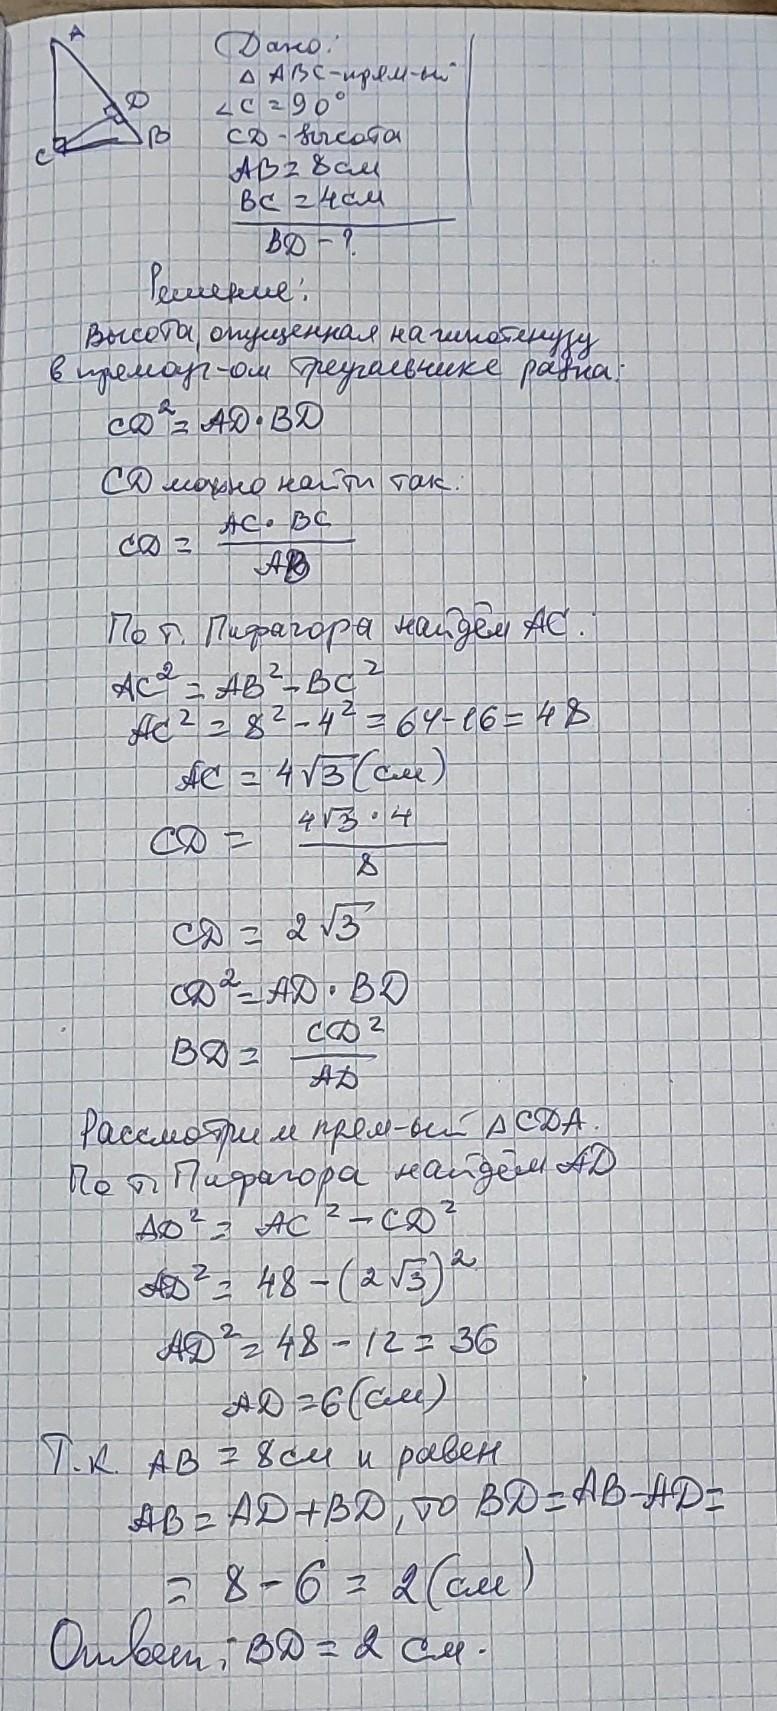 A
D
B
C
Дано:
△ ABC - прям-ый
∠C = 90°
CD - высота
AB = 8 см
BC = 4 см
BD - ?
Решение:
Высота, опущенная на гипотенузу
в прямоуг-ом треугольнике равна:
CD² = AD · BD
CD можно найти так:
CD = AC · BC / AB
По т. Пифагора найдём AC:
AC² = AB² - BC²
AC² = 8² - 4² = 64 - 16 = 48
AC = 4√3 (см)
CD = 4√3 · 4 / 8
CD = 2√3
CD² = AD · BD
BD = CD² / AD
Рассмотрим прям-ый △CDA.
По т. Пифагора найдём AD
AD² = AC² - CD²
AD² = 48 - (2√3)²
AD² = 48 - 12 = 36
AD = 6 (см)
Т.к. AB = 8 см и равен
AB = AD + BD, то BD = AB - AD =
= 8 - 6 = 2 (см)
Ответ: BD = 2 см.